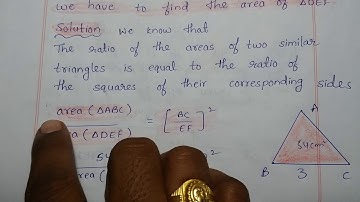 we have to find the area of ΔDEF.
Solution we know that
The ratio of the areas of two similar
triangles is equal to the ratio of
the squares of their corresponding sides
area (ΔABC) = [BC/EF]²
(ΔDEF)
A
54cm²
B 3 C